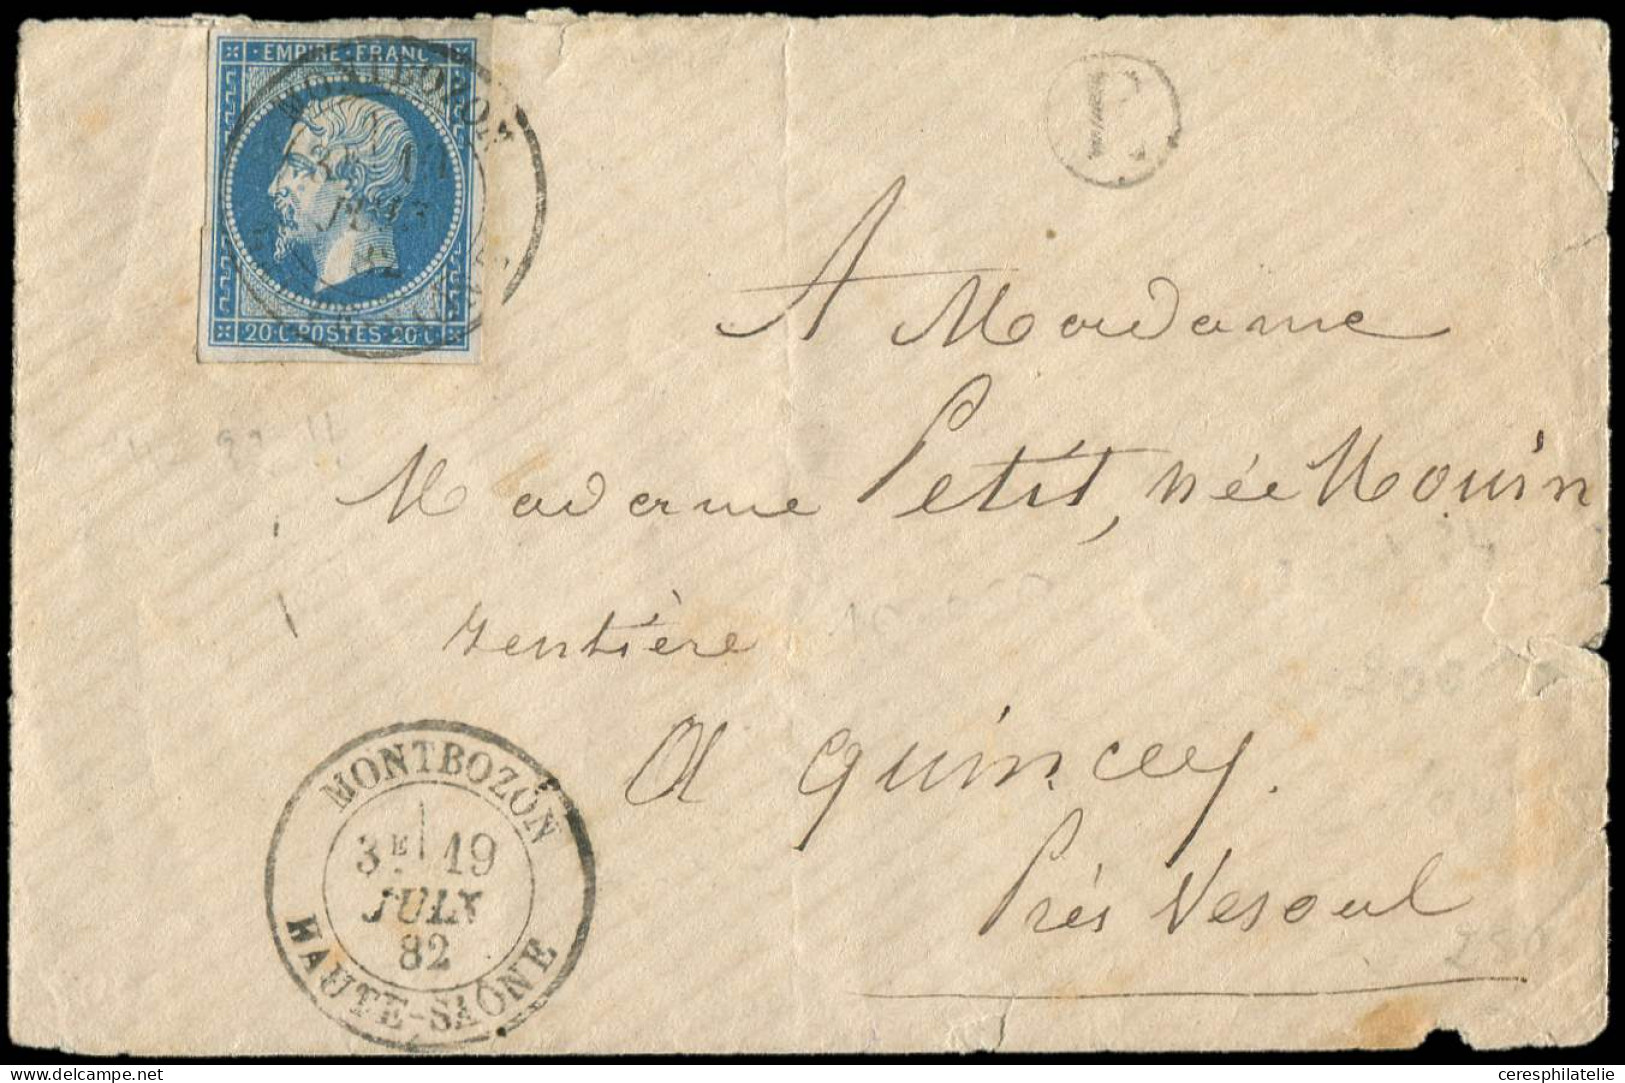 EMPIRE · FRANC
20·C·POSTES·20·C
MONTBOZON
JUIN
82
B
A Madame
Madame Petit, née Mouin
rentière
A Quincey.
Près Vesoul
MONTBOZON
3E 19
JUIN
82
HAUTE-SAÔNE
ceresphilatelie